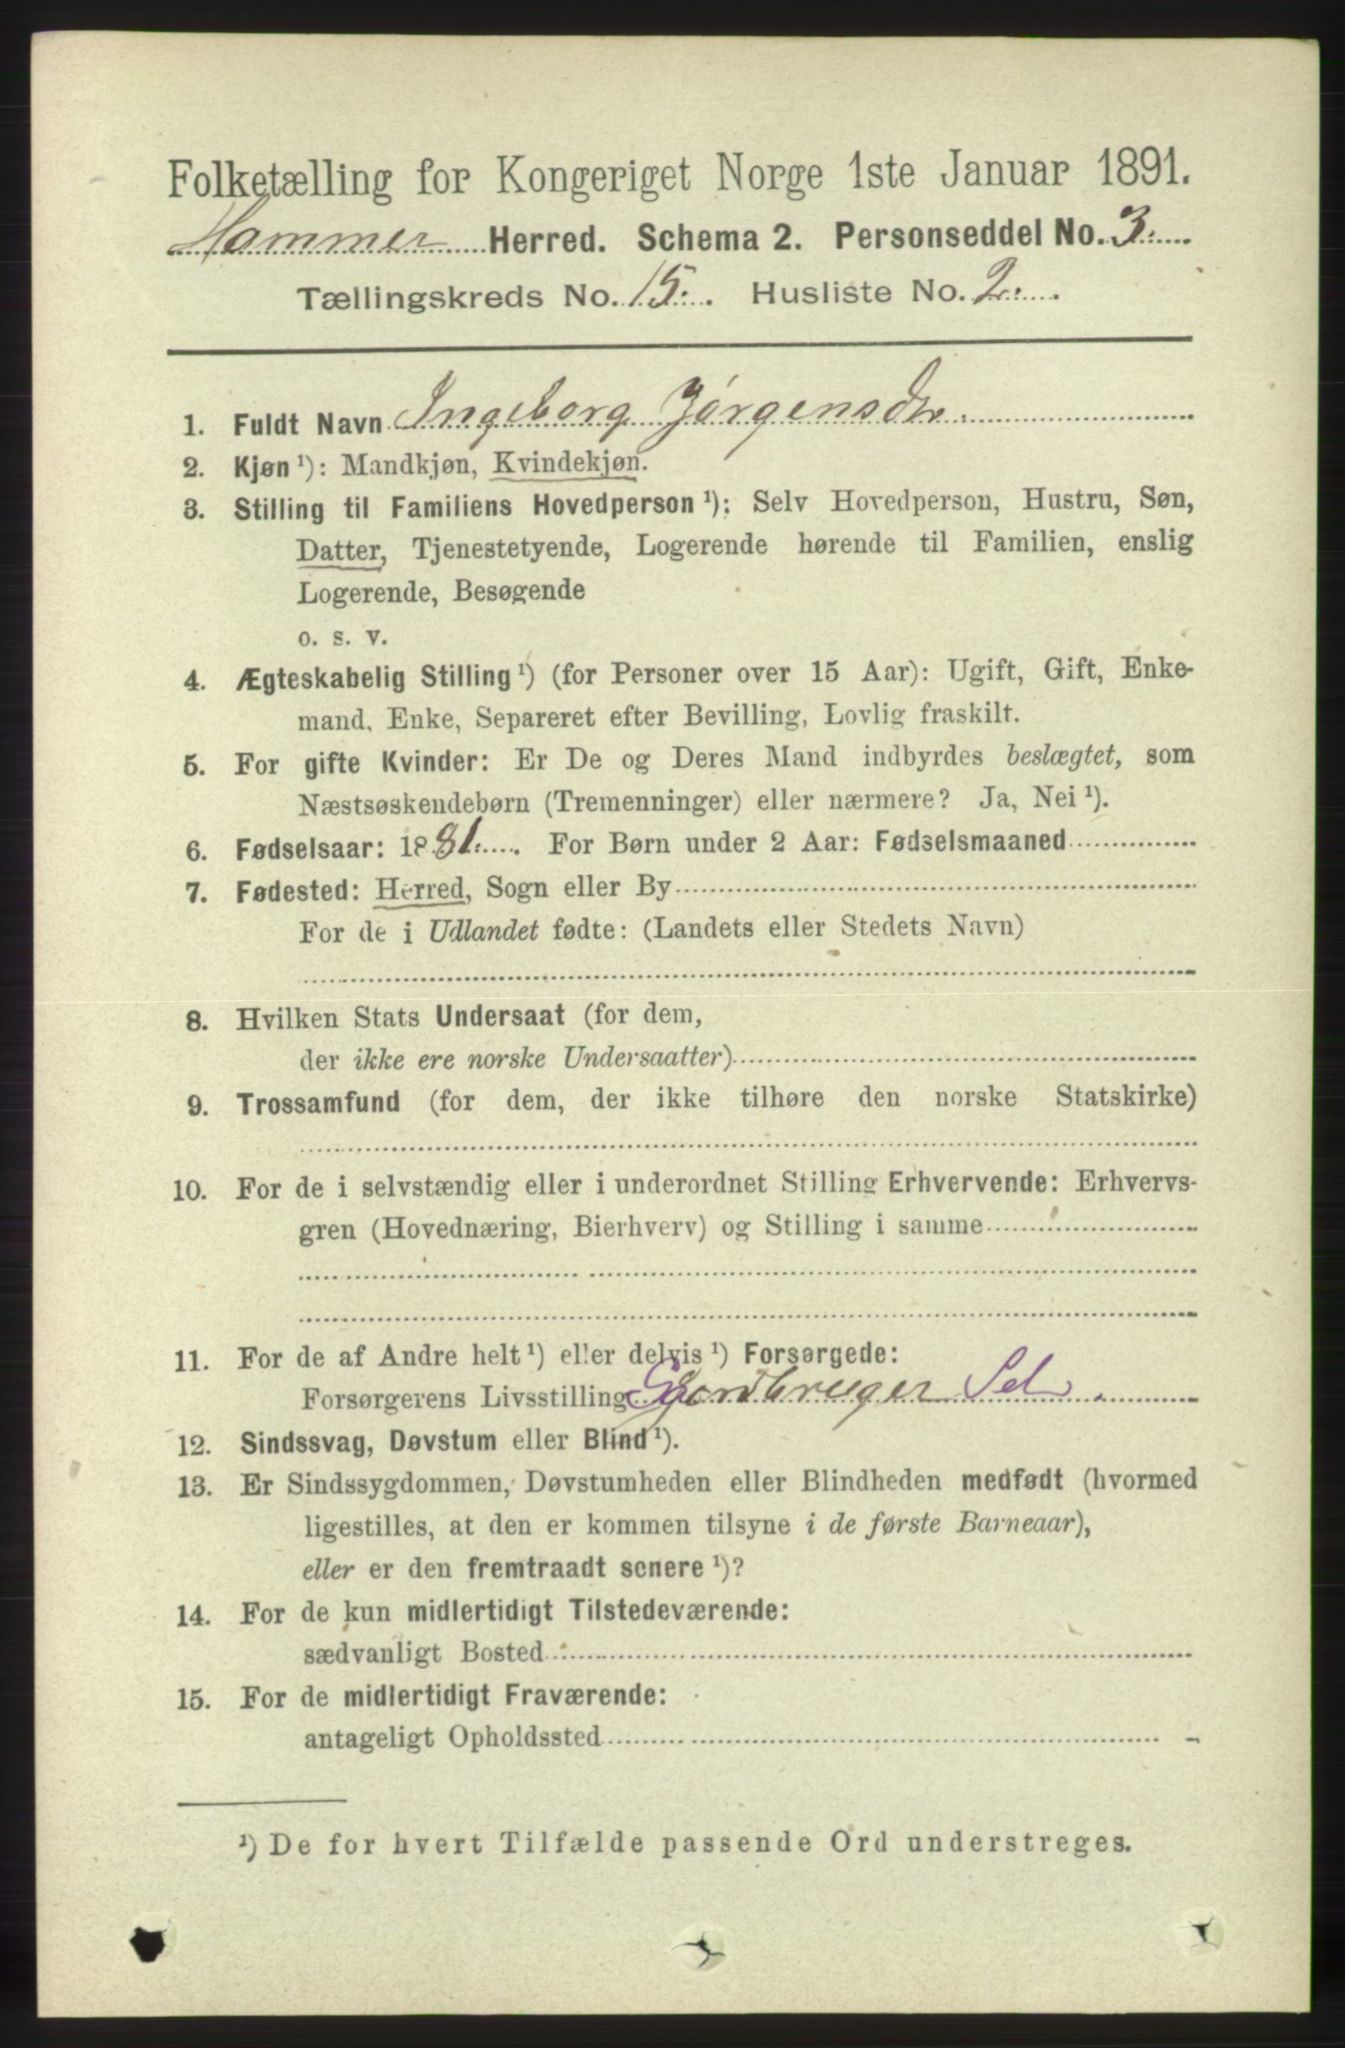 Folketælling for Kongeriget Norge 1ste Januar 1891.
Hammer Herred. Schema 2. Personseddel No. 3.
Tællingskreds No. 15. Husliste No. 2.
1. Fuldt Navn Ingeborg Jørgensdtr.
2. Kjøn ¹): Mandkjøn, Kvindekjøn.
3. Stilling til Familiens Hovedperson ¹): Selv Hovedperson, Hustru, Søn,
Datter, Tjenestetyende, Logerende hørende til Familien, enslig
Logerende, Besøgende
o. s. v.
4. Ægteskabelig Stilling ¹) (for Personer over 15 Aar): Ugift, Gift, Enke-
mand, Enke, Separeret efter Bevilling, Lovlig fraskilt.
5. For gifte Kvinder: Er De og Deres Mand indbyrdes beslægtet, som
Næstsøskendebørn (Tremenninger) eller nærmere? Ja, Nei ¹).
6. Fødselsaar: 1881. For Børn under 2 Aar: Fødselsmaaned
7. Fødested: Herred, Sogn eller By
For de i Udlandet fødte: (Landets eller Stedets Navn)
8. Hvilken Stats Undersaat (for dem,
der ikke ere norske Undersaatter)
9. Trossamfund (for dem, der ikke tilhøre den norske Statskirke)
10. For de i selvstændig eller i underordnet Stilling Erhvervende: Erhvervs-
gren (Hovednæring, Bierhverv) og Stilling i samme
11. For de af Andre helt ¹) eller delvis ¹) Forsørgede:
Forsørgerens Livsstilling Gjordbruger Sel.
12. Sindssvag, Døvstum eller Blind ¹).
13. Er Sindssygdommen, Døvstumheden eller Blindheden medfødt (hvormed
ligestilles, at den er kommen tilsyne i de første Barneaar),
eller er den fremtraadt senere ¹)?
14. For de kun midlertidigt Tilstedeværende:
sædvanligt Bosted
15. For de midlertidigt Fraværende:
antageligt Opholdssted
¹) De for hvert Tilfælde passende Ord understreges.